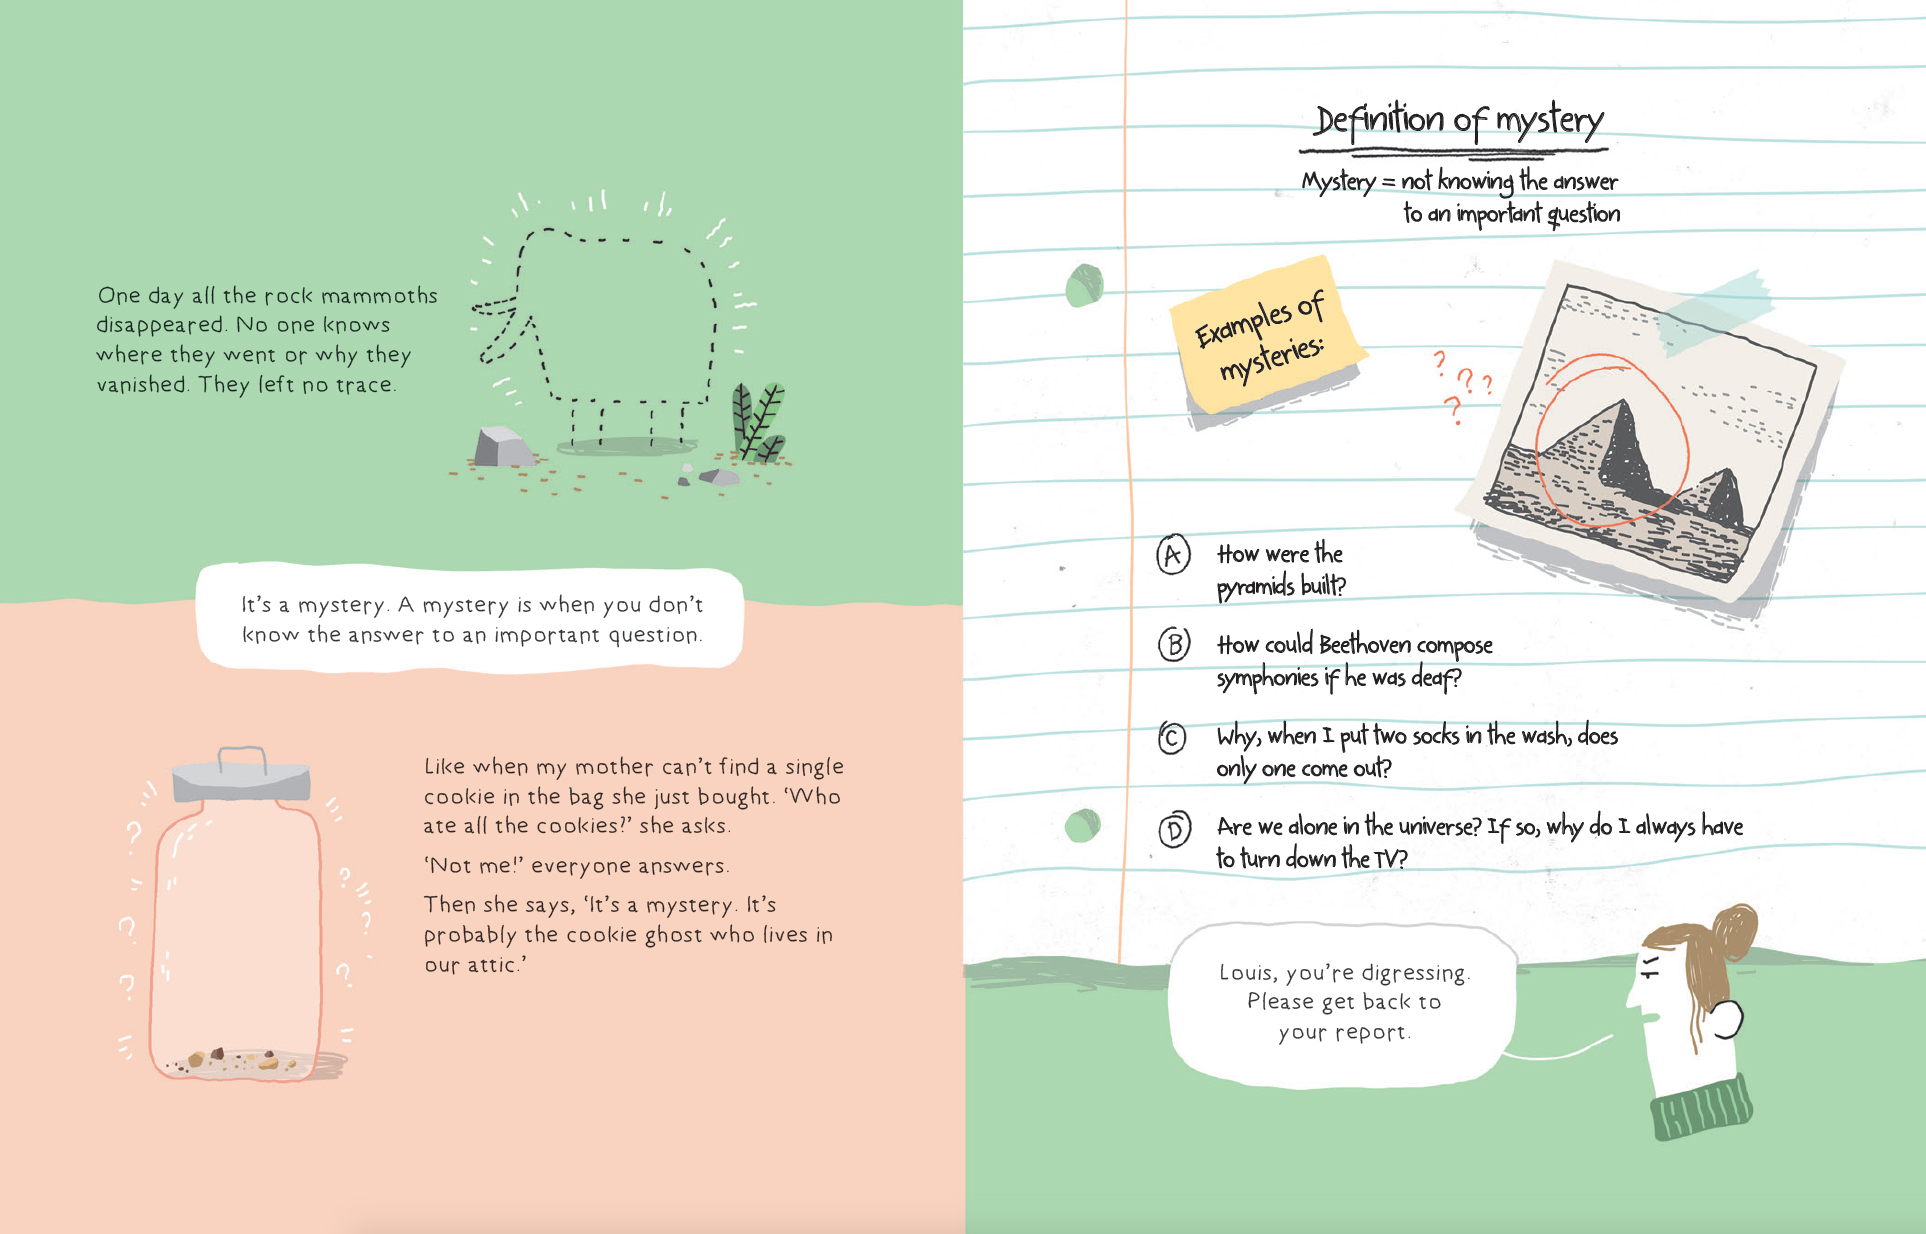 One day all the rock mammoths
disappeared. No one knows
where they went or why they
vanished. They left no trace.
It's a mystery. A mystery is when you don't
know the answer to an important question.
Like when my mother can't find a single
cookie in the bag she just bought. ‘Who
ate all the cookies?’ she asks.
‘Not me!’ everyone answers.
Then she says, ‘It's a mystery. It's
probably the cookie ghost who lives in
our attic.’
? ? ? ? ? ?
Definition of mystery
Mystery = not knowing the answer
to an important question
Examples of
mysteries:
? ? ? ?
A How were the
pyramids built?
B How could Beethoven compose
symphonies if he was deaf?
C Why, when I put two socks in the wash, does
only one come out?
D Are we alone in the universe? If so, why do I always have
to turn down the TV?
Louis, you're digressing.
Please get back to
your report.